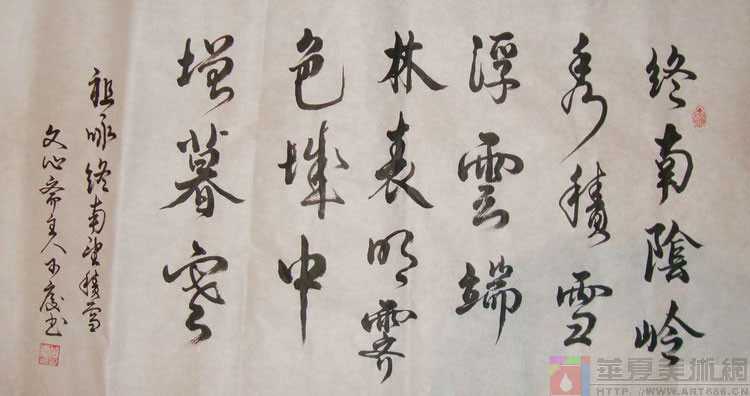 終南陰嶺
秀積雪
浮雲端
林表明霽
色城中
增暮寒
祖咏終南望積雪
文心斋主人不度书
華夏美術網
HTTP://WWW.ART886.CN